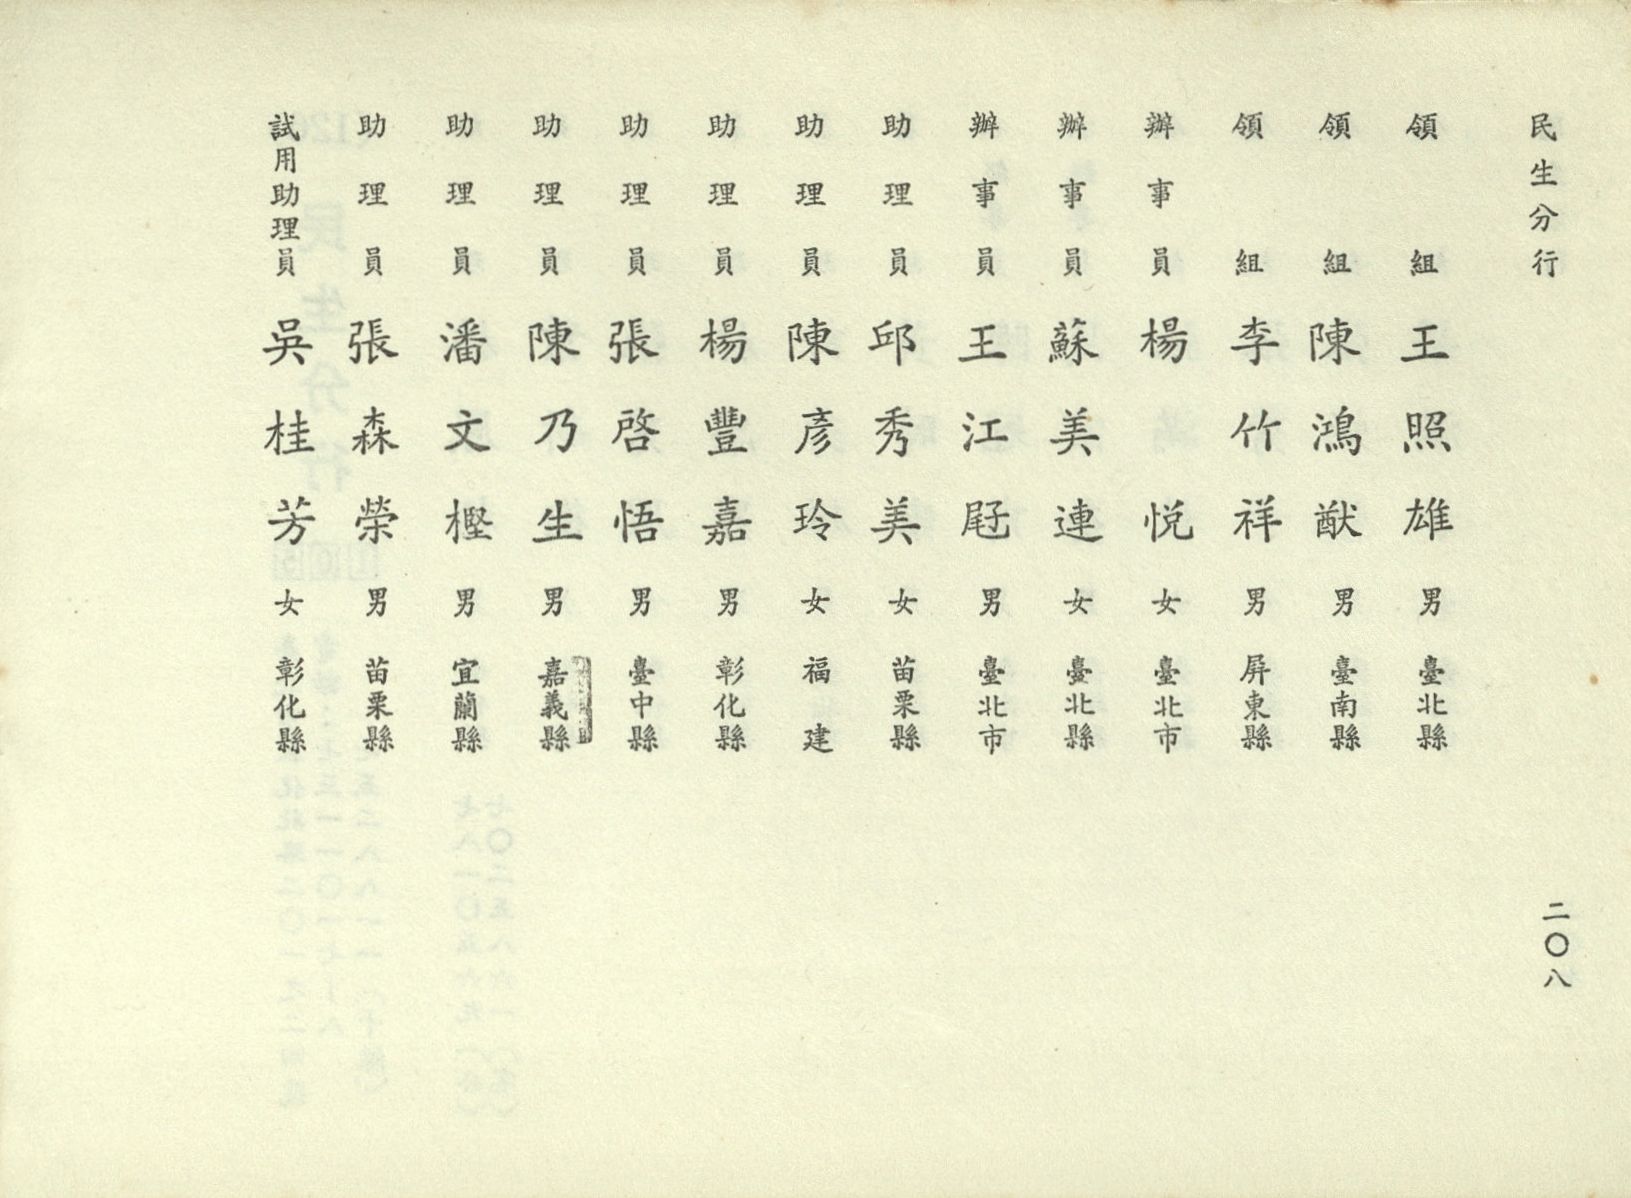 民生分行
領組 王照雄 男 臺北縣
領組 陳鴻猷 男 臺南縣
領組 李竹祥 男 屏東縣
辦事員 楊悅 女 臺北市
辦事員 蘇美連 女 臺北縣
辦事員 王江 男 臺北市
助理員 邱秀美 女 苗栗縣
助理員 陳彥玲 女 福建
助理員 楊豐嘉 男 彰化縣
助理員 張啓悟 男 臺中縣
助理員 陳乃生 男 嘉義縣
助理員 潘文樫 男 宜蘭縣
助理員 張森榮 男 苗栗縣
試用助理員 吳桂芳 女 彰化縣
二〇八